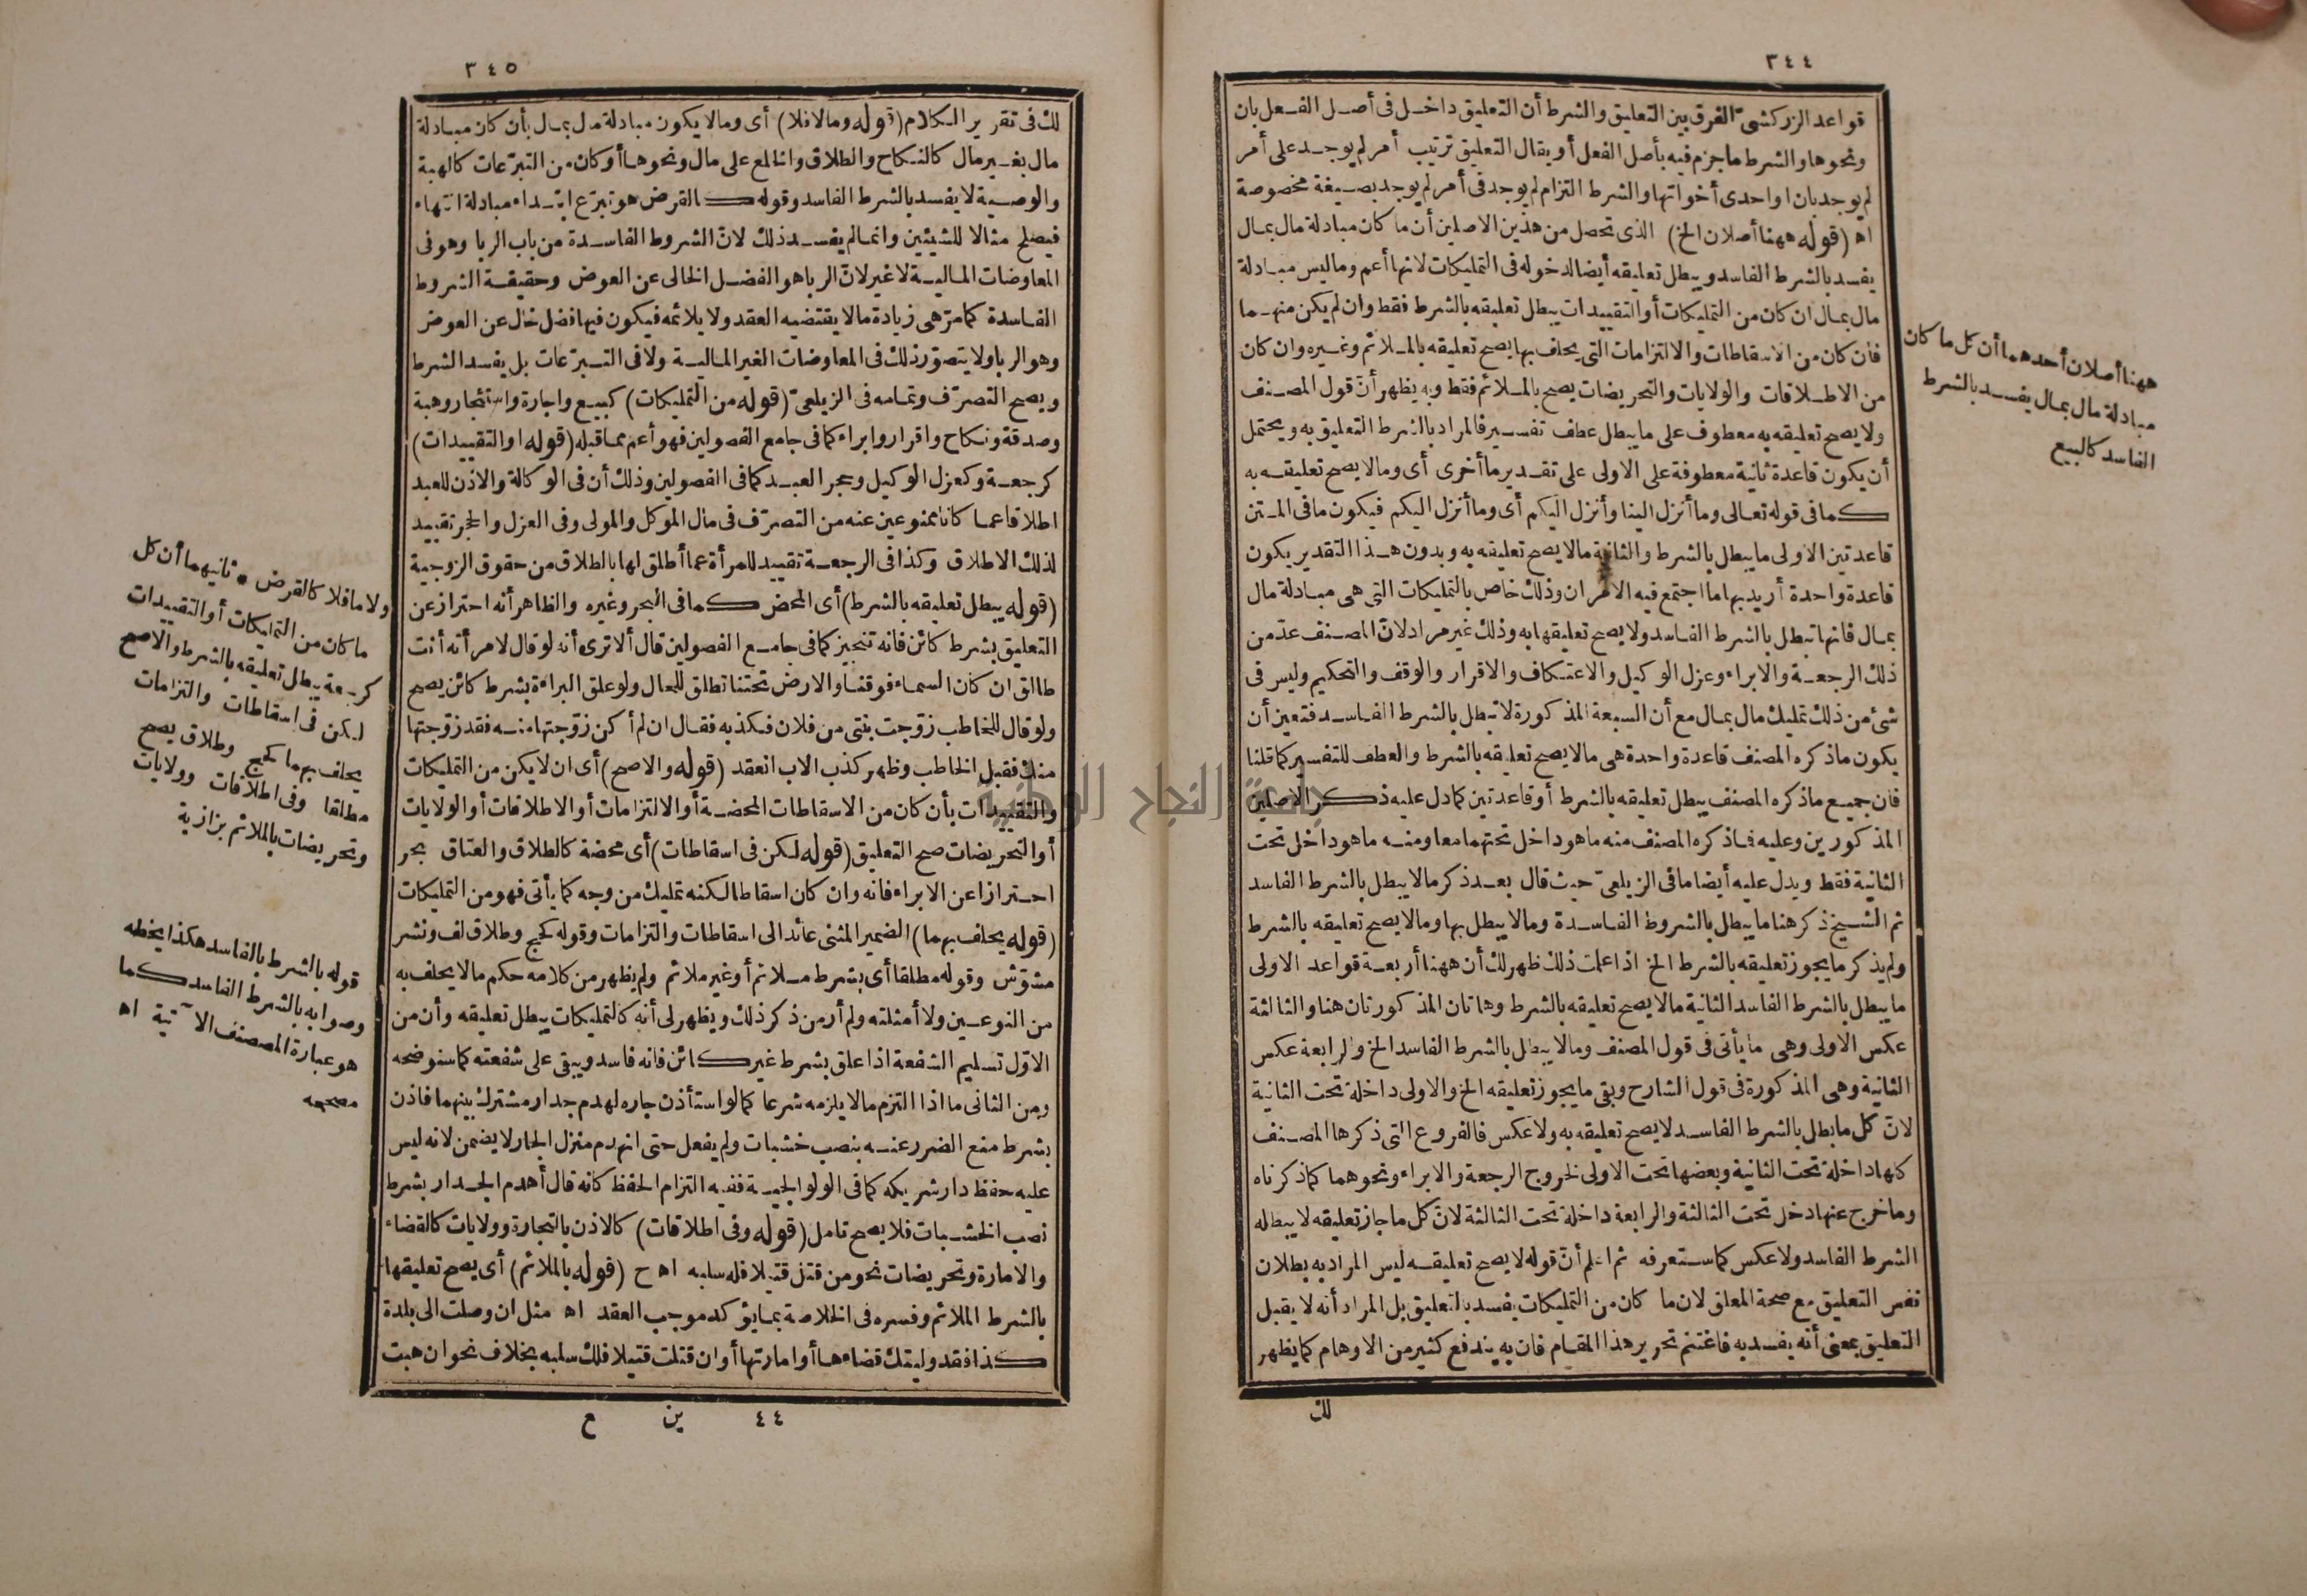 ٣٤٤
قواعد الزركشى الفرق بين التعليق والشرط أن التعليق داخل فى أصل الفعل بان
ونحوها والشرط ما جزم فيه بأصل الفعل أو يقال التعليق ترتيب أمر لم يوجد على أمر
لم يوجد بان او احدى أخواتها والشرط التزام لم يوجد فى أمر لم يوجد بصيغة مخصوصة
اه (قوله ههنا أصلان الخ) الذى تحصل من هذين الاصلين أن ما كان مبادلة مال بمال
يفسد بالشرط الفاسد ويبطل تعليقه أيضا لدخوله فى التمليكات لانها أعم وما ليس مبادلة
مال بمال ان كان من التمليكات أو التقييدات يبطل تعليقه بالشرط فقط وان لم يكن منهما
فان كان من الاسقاطات والالتزامات التى يحلف بها يصح تعليقه بالملائم وغيره وان كان
من الاطلاقات والولايات والتحريضات يصح بالملائم فقط وبه يظهر أن قول المصنف
ولا يصح تعليقه به معطوف على ما يبطل عطف تفسير فالمراد بالشرط التعليق به ويحتمل
أن يكون قاعدة ثانية معطوفة على الاولى على تقدير ما أخرى أى وما لا يصح تعليقه به
كما فى قوله تعالى وما أنزل الينا وأنزل اليكم أى وما أنزل اليكم فيكون ما فى المتن
قاعدتين الاولى ما يبطل بالشرط والثانية ما لا يصح تعليقه به وبدون هذا التقدير يكون
قاعدة واحدة أريد بها ما اجتمع فيه الامران وذلك خاص بالتمليكات التى هى مبادلة مال
بمال فانها تبطل بالشرط الفاسد ولا يصح تعليقها به وذلك غير مراد لان المصنف عدّ من
ذلك الرجعة والابراء وعزل الوكيل والاعتكاف والاقرار والوقف والتحكيم وليس فى
شئ من ذلك تمليك مال بمال مع أن السبعة المذكورة لا تبطل بالشرط الفاسد فتعين أن
يكون ما ذكره المصنف قاعدة واحدة هى ما لا يصح تعليقه بالشرط والعطف للتفسير كما قلنا
فان جميع ما ذكره المصنف يبطل تعليقه بالشرط أو قاعدتين كما دل عليه ذكر الاصلين
المذكورين وعليه فما ذكره المصنف منه ما هو داخل تحتهما معا ومنه ما هو داخل تحت
الثانية فقط ويدل عليه أيضا ما فى الزيلعى حيث قال بعد ذكر ما لا يبطل بالشرط الفاسد
ثم الشيخ ذكر هنا ما يبطل بالشروط الفاسدة وما لا يبطل بها وما لا يصح تعليقه بالشرط
ولم يذكر ما يجوز تعليقه بالشرط الخ اذا علمت ذلك ظهر لك أن ههنا أربعة قواعد الاولى
ما يبطل بالشرط الفاسد الثانية ما لا يصح تعليقه بالشرط وهاتان المذكورتان هنا والثالثة
عكس الاولى وهى ما يأتى فى قول المصنف وما لا يبطل بالشرط الفاسد الخ والرابعة عكس
الثانية وهى المذكورة فى قول الشارح وبقى ما يجوز تعليقه الخ والاولى داخلة تحت الثانية
لان كل ما بطل بالشرط الفاسد لا يصح تعليقه به ولا عكس فالفروع التى ذكرها المصنف
كلها داخلة تحت الثانية وبعضها تحت الاولى لخروج الرجعة والابراء ونحوهما كما ذكرناه
وما خرج عنها دخل تحت الثالثة والرابعة داخلة تحت الثالثة لان كل ما جاز تعليقه لا يبطله
الشرط الفاسد ولا عكس كما ستعرفه ثم اعلم أن قوله لا يصح تعليقه ليس المراد به بطلان
نفس التعليق مع صحة المعلق لان ما كان من التمليكات يفسد بالتعليق بل المراد أنه لا يقبل
التعليق بمعنى أنه يفسد به فاغتنم تحرير هذا المقام فان به يندفع كثير من الاوهام كما يظهر
لك
ههنا أصلان أحدهما أن كل ما كان
مبادلة مال بمال يفسد بالشرط
الفاسد كالبيع
٣٤٥
لك فى تقرير الكلام (قوله وما لا فلا) أى وما لا يكون مبادلة مال بمال بأن كان مبادلة
مال بغير مال كالنكاح والطلاق والخلع على مال ونحوها أو كان من التبرّعات كالهبة
والوصية لا يفسد بالشرط الفاسد وقوله كالقرض هو تبرّع ابتداء مبادلة انتهاء
فيصلح مثالا للشيئين وانما لم يفسد ذلك لان الشروط الفاسدة من باب الربا وهو فى
المعاوضات المالية لا غير لان الربا هو الفضل الخالى عن العوض وحقيقة الشروط
الفاسدة كما مرّ هى زيادة ما لا يقتضيه العقد ولا يلائمه فيكون فيها فضل خال عن العوض
وهو الربا ولا يتصوّر ذلك فى المعاوضات الغير المالية ولا فى التبرّعات بل يفسد الشرط
ويصح التصرّف وتمامه فى الزيلعىّ (قوله من التمليكات) كبيع واجارة واستئجار وهبة
وصدقة ونكاح واقرار وابراء كما فى جامع الفصولين فهو أعم مما قبله (قوله او التقييدات)
كرجعة وكعزل الوكيل وحجر العبد كما فى الفصولين وذلك أن فى الوكالة والاذن للعبد
اطلاقا عما كانا ممنوعين عنه من التصرّف فى مال الموكل والمولى وفى العزل والحجر تقييد
لذلك الاطلاق وكذا فى الرجعة تقييد للمرأة عما أطلق لها بالطلاق من حقوق الزوجية
(قوله يبطل تعليقه بالشرط) أى المحض كما فى البحر وغيره والظاهر أنه احتراز عن
التعليق بشرط كائن فانه تنجيز كما فى جامع الفصولين قال ألا ترى أنه لو قال لامرأته أنت
طالق ان كان السماء فوقنا والارض تحتنا تطلق للحال ولو علق البراءة بشرط كائن يصح
ولو قال للخاطب زوّجت بنتى من فلان فكذبه فقال ان لم أكن زوّجتها منه فقد زوّجتها
منك فقبل الخاطب وظهر كذب الاب انعقد (قوله والاصح) أى ان لا يكن من التمليكات
والتقييدات بأن كان من الاسقاطات المحضة أو الالتزامات أو الاطلاقات أو الولايات
أو التحريضات صح التعليق (قوله لكن فى اسقاطات) أى محضة كالطلاق والعتاق بحر
احترازا عن الابراء فانه وان كان اسقاطا لكنه تمليك من وجه كما يأتى فهو من التمليكات
(قوله يحلف بهما) الضمير المثنى عائد الى اسقاطات والتزامات وقوله كحج وطلاق لف ونشر
مشوّش وقوله مطلقا أى بشرط ملائم أو غير ملائم ولم يظهر من كلامه حكم ما لا يحلف به
من النوعين ولا أمثلته ولم أر من ذكر ذلك ويظهر لى أنه كالتمليكات يبطل تعليقه وأن من
الاوّل تسليم الشفعة اذا علق بشرط غير كائن فانه فاسد ويبقى على شفعته كما سنوضحه
ومن الثانى ما اذا التزم ما لا يلزمه شرعا كما لو استأذن جاره لهدم جدار مشترك بينهما فاذن
بشرط منع الضرر عنه بنصب خشبات ولم يفعل حتى انهدم منزل الجار لا يضمن لانه ليس
عليه حفظ دار شريكه كما فى الولوالجية ففيه التزام الحفظ كانه قال أهدم الجدار بشرط
نصب الخشبات فلا يصح تامل (قوله وفى اطلاقات) كالاذن بالتجارة وولايات كالقضاء
والامارة وتحريضات نحو من قتل قتيلا فله سلبه اه ح (قوله بالملائم) أى يصح تعليقها
بالشرط الملائم وفسره فى الخلاصة بما يؤكد موجب العقد اه مثل ان وصلت الى بلدة
كذا فقد وليتك قضاءها أو امارتها أو ان قتلت قتيلا فلك سلبه بخلاف نحو ان هبت
٤٤ ين ع
ولا ما فلا كالقرض * ثانيهما أن كل
ما كان من التمليكات أو التقييدات
كرجعة يبطل تعليقه بالشرط والاصح
لكن فى اسقاطات والتزامات
يحلف بهما كحج وطلاق يصح
مطلقا وفى اطلاقات وولايات
وتحريضات بالملائم بزازية
قوله بالشرط بالفاسد هكذا بخطه
وصوابه بالشرط الفاسد كما
هو عبارة المصنف الآتية اه
مصححه
جامعة النجاح الوطنية